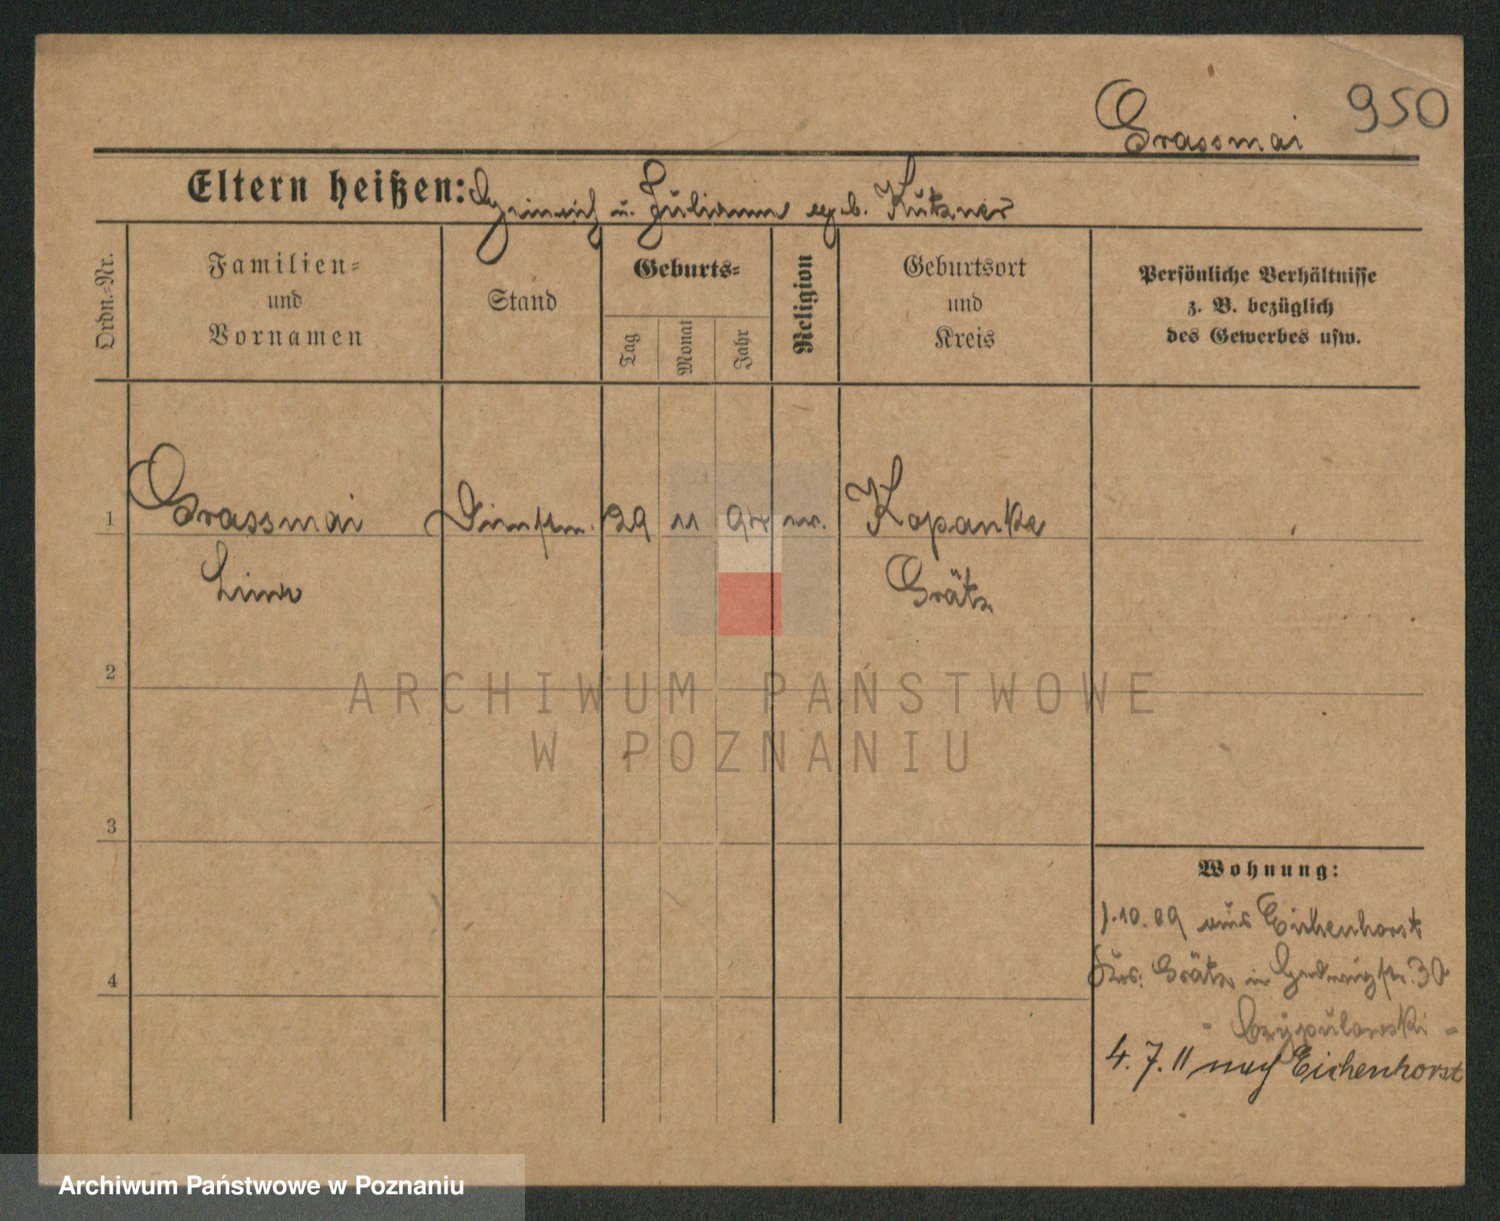 950
Grassmai
Eltern heißen: Heinrich u. Julianna geb. Kutzner
Ordn.-Nr.
Familien-
und
Vornamen
Stand
Geburts-
Tag
Monat
Jahr
Religion
Geburtsort
und
Kreis
Persönliche Verhältnisse
z. B. bezüglich
des Gewerbes usw.
1
Grassmai
29
11
Kopanke
Grätz
2
3
4
Wohnung:
1.10.09 aus Eichenhorst
Krs. Grätz in Hedwigstr. 30
4.7.11 nach Eichenhorst
ARCHIWUM PAŃSTWOWE
W POZNANIU
Archiwum Państwowe w Poznaniu